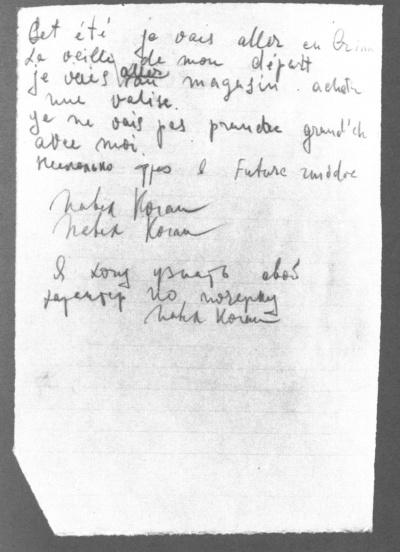 Cet été je vais aller en Crim
La veille de mon départ
je vais aller au magasin acheter
une valise.
Je ne vais pas prendre grand'ch
avec moi.
Несколько фраз в Future immédiat
Павел Коган
Павел Коган
Я хочу узнать свой
характер по почерку
Павел Коган